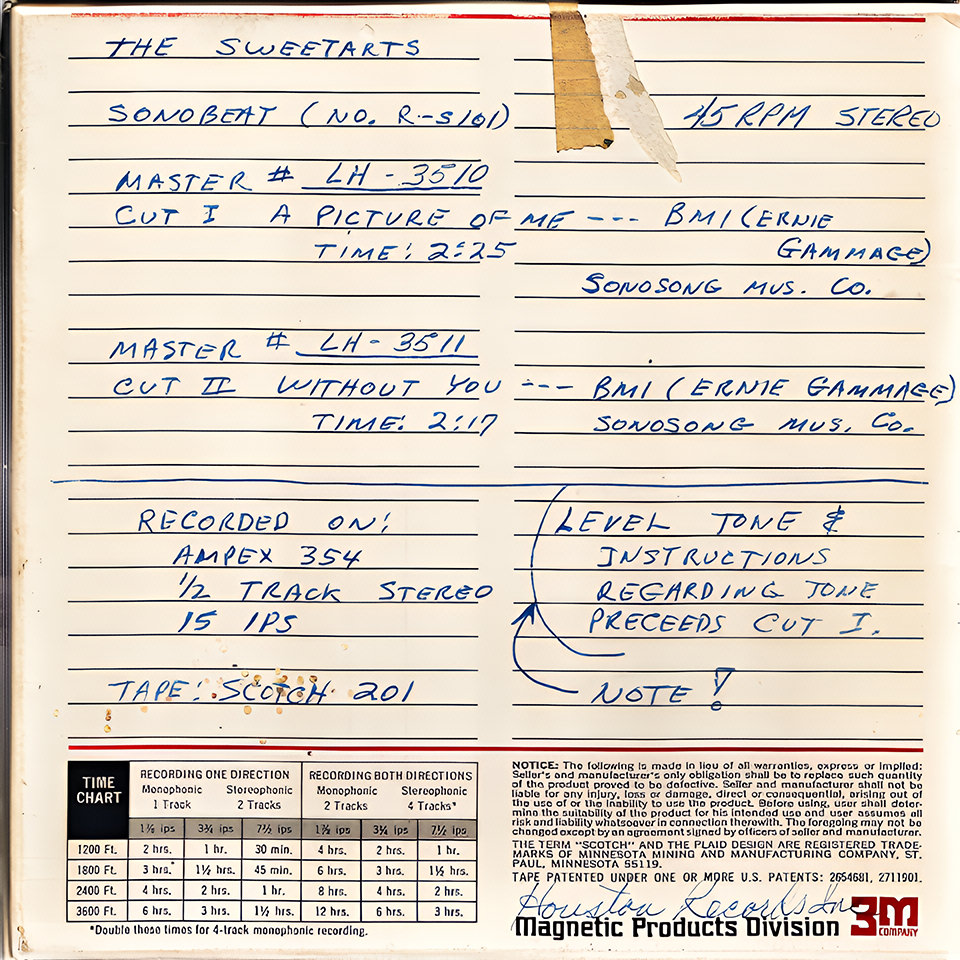 THE SWEETARTS
SONOBEAT (NO. R-S101) 45 RPM STEREO
MASTER # LH - 3510
CUT I A PICTURE OF ME --- BMI (ERNIE
GAMMAGE)
TIME: 2:25
SONOSONG MUS. CO.
MASTER # LH - 3511
CUT II WITHOUT YOU --- BMI (ERNIE GAMMAGE)
TIME: 2:17 SONOSONG MUS. CO.
RECORDED ON:
AMPEX 354
1/2 TRACK STEREO
15 IPS
TAPE: SCOTCH 201
LEVEL TONE &
INSTRUCTIONS
REGARDING TONE
PRECEEDS CUT I.
NOTE!
TIME CHART
RECORDING ONE DIRECTION RECORDING BOTH DIRECTIONS
Monophonic Stereophonic Monophonic Stereophonic
1 Track 2 Tracks 2 Tracks 4 Tracks*
1⅞ ips 3¾ ips 7½ ips 1⅞ ips 3¾ ips 7½ ips
1200 Ft. 2 hrs. 1 hr. 30 min. 4 hrs. 2 hrs. 1 hr.
1800 Ft. 3 hrs.* 1½ hrs. 45 min. 6 hrs. 3 hrs. 1½ hrs.
2400 Ft. 4 hrs. 2 hrs. 1 hr. 8 hrs. 4 hrs. 2 hrs.
3600 Ft. 6 hrs. 3 hrs. 1½ hrs. 12 hrs. 6 hrs. 3 hrs.
*Double these times for 4-track monophonic recording.
NOTICE: The following is made in lieu of all warranties, express or implied:
Seller's and manufacturer's only obligation shall be to replace such quantity
of the product proved to be defective. Seller and manufacturer shall not be
liable for any injury, loss or damage, direct or consequential, arising out of
the use of or the inability to use the product. Before using, user shall deter-
mine the suitability of the product for his intended use and user assumes all
risk and liability whatsoever in connection therewith. The foregoing may not be
changed except by an agreement signed by officers of seller and manufacturer.
THE TERM "SCOTCH" AND THE PLAID DESIGN ARE REGISTERED TRADE-
MARKS OF MINNESOTA MINING AND MANUFACTURING COMPANY, ST.
PAUL, MINNESOTA 55119.
TAPE PATENTED UNDER ONE OR MORE U.S. PATENTS: 2654681, 2711901.
Houston Records Inc
Magnetic Products Division 3M
COMPANY